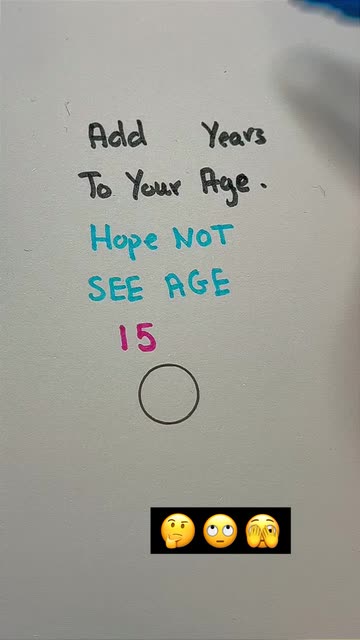 Add Years
To Your Age.
Hope NOT
SEE AGE
15